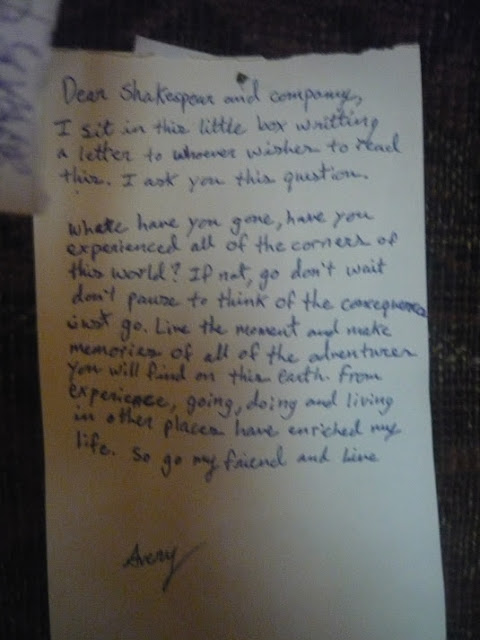 Dear Shakespear and company,
I sit in this little box writting
a letter to whoever wishes to read
this. I ask you this question.
where have you gone, have you
experienced all of the corners of
this world? If not, go don't wait
don't pause to think of the concequences
just go. Live the moment and make
memories of all of the adventures
you will find on this earth. From
experience, going, doing and living
in other places have enriched my
life. So go my friend and live
Avery